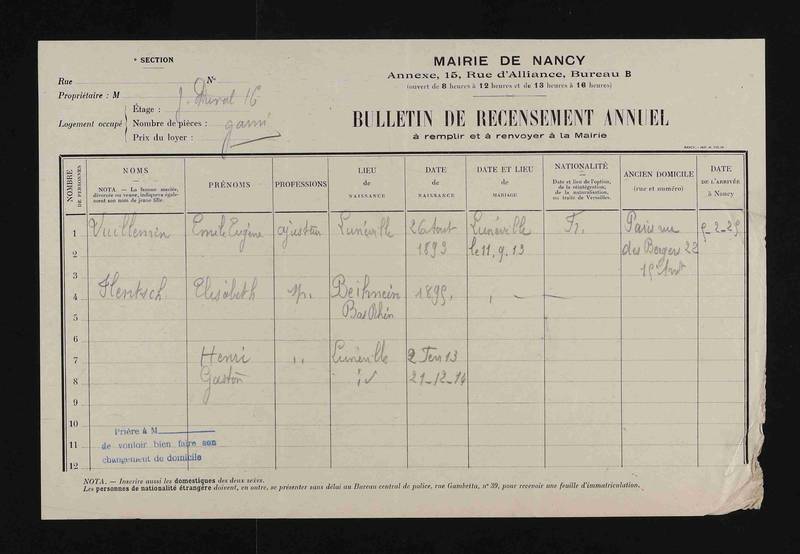 * SECTION
Rue N°
Propriétaire : M
Étage : J. Duval 16
Logement occupé Nombre de pièces : garni
Prix du loyer :
MAIRIE DE NANCY
Annexe, 15, Rue d'Alliance, Bureau B
(ouvert de 8 heures à 12 heures et de 13 heures à 16 heures)
BULLETIN DE RECENSEMENT ANNUEL
à remplir et à renvoyer à la Mairie
NOMBRE DE PERSONNES
NOMS
NOTA. — La femme mariée, divorcée ou veuve, indiquera également son nom de jeune fille.
PRÉNOMS
PROFESSIONS
LIEU de NAISSANCE
DATE de NAISSANCE
DATE ET LIEU de MARIAGE
NATIONALITÉ
Date et lieu de l'option, de la réintégration, de la naturalisation, ou traité de Versailles.
ANCIEN DOMICILE (rue et numéro)
DATE DE L'ARRIVÉE à Nancy
1 Vuillemin Emile Eugène ajusteur Lunéville 26 Août Lunéville Fr. Paris rue 9-2-29
2 1893 le 11.9.13 des Bergers 22
3 15e
4 Hentsch Elisabeth sp. 1895
5 Bas Rhin
6
7 Henri " Lunéville 13
8 Gaston id 21-12-14
9
10
11
12
Prière à M
de vouloir bien faire son
changement de domicile
NOTA. — Inscrire aussi les domestiques des deux sexes.
Les personnes de nationalité étrangère doivent, en outre, se présenter sans délai au Bureau central de police, rue Gambetta, n° 39, pour recevoir une feuille d'immatriculation.